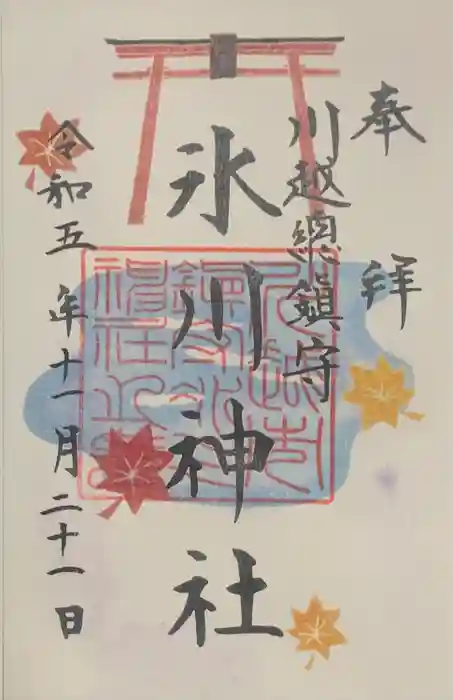 奉拝
川越總鎮守
氷川神社
令和五年十一月二十一日